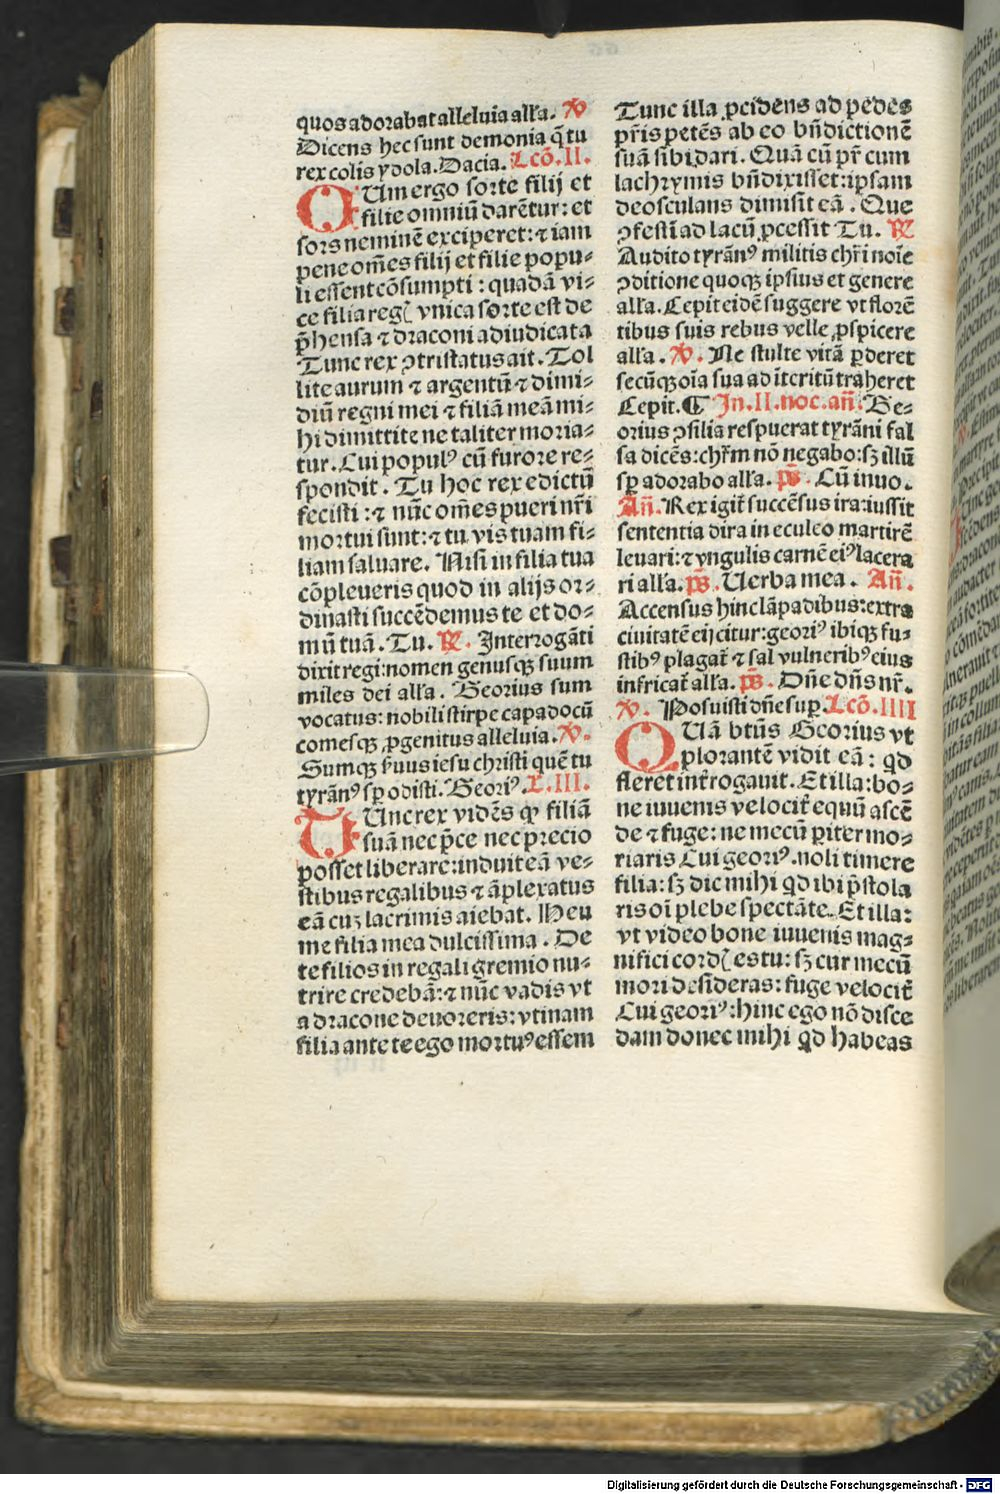 quos adorabat alleluia alľa. ℣
Dicens hec sunt demonia q̃ tu
rex colis ydola. Dacia. Lcõ. II.
CUm ergo sorte filij et
filie omniũ darẽtur: et
sors neminẽ exciperet: ⁊ iam
pene om̃es filij et filie popu⸗
li essent cõsumpti: quadã vi⸗
ce filia regꝭ vnica sorte est de
p̃hensa ⁊ draconi adiudicata
Tunc rex ↄtristatus ait. Tol
lite aurum ⁊ argentũ ⁊ dimi⸗
diũ regni mei ⁊ filiã meã mi⸗
hi dimittite ne taliter moria⸗
tur. Cui populꝰ cũ furore re⸗
spondit. Tu hoc rex edictũ
fecisti: ⁊ nũc om̃es pueri nr̃i
mortui sunt: ⁊ tu vis tuam fi⸗
liam saluare. Nisi in filia tua
cõpleueris quod in alijs or⸗
dinasti succẽdemus te et do⸗
mũ tuã. Tu. ℟. Interrogãti
dixit regi: nomen genusqꝫ suum
miles dei alľa. Georius sum
vocatus: nobili stirpe capadocũ
comesqꝫ ꝓgenitus alleluia. ℣.
Sumqꝫ ẜuus iesu christi quẽ tu
tyrãnꝰ sꝑ odisti. Georiꝰ. L. III.
TUnc rex vidẽs ꝙ filiã
suã nec p̃ce nec precio
posset liberare: induit eã ve⸗
stibus regalibus ⁊ ãplexatus
eã cuꝫ lacrimis aiebat. Heu
me filia mea dulcissima. De
te filios in regali gremio nu⸗
trire credebã: ⁊ nũc vadis vt
a dracone deuoreris: vtinam
filia ante te ego mortuꝰ essem
Tunc illa ꝓcidens ad pedes
pr̃is petẽs ab eo bñdictionẽ
suã sibi dari. Quã cũ pr̃ cum
lachrymis bñdixisset: ipsam
deosculans dimisit eã. Que
ↄfestĩ ad lacũ ꝓcessit Tu. ℟
Audito tyrãnꝰ militis chr̃i noĩe
ↄditione quoqꝫ ipsius et genere
alľa. Cepit eidẽ suggere vt florẽ
tibus suis rebus velle ꝓspicere
alľa. ℣. Ne stulte vitã ꝑderet
secũqꝫ oĩa sua ad ĩteritũ traheret
Cepit. ¶ In. II. noc. añ. Ge⸗
orius ↄsilia respuerat tyrãni fal
sa dicẽs: chr̃m nõ negabo: sꝫ illũ
sꝑ adorabo alľa. p̃s. Cũ inuo.
Añ. Rex igit̃ succẽsus ira: iussit
sententia dira in eculeo martirẽ
leuari: ⁊ yngulis carnẽ eiꝰ lacera
ri alľa. p̃s. Uerba mea. Añ.
Accensus hinc lãpadibus: extra
ciuitatẽ eijcitur: georiꝰ ibiqꝫ fu⸗
stibꝰ plagat̃ ⁊ sal vulneribꝰ eius
infricat̃ alľa. p̃s. Dñe dñs nr̃.
℣. Posuisti dñe suꝑ. Lcõ. IIII
QUã bt̃us Georius vt
ꝓlorantẽ vidit eã: qd̃
fleret int̃rogauit. Et illa: bo⸗
ne iuuenis velocit̃ equũ ascẽ
de ⁊ fuge: ne mecũ ꝑiter mo⸗
riaris Cui georiꝰ. noli timere
filia: sꝫ dic mihi qd̃ ibi p̃stola
ris oĩ plebe spectãte. Et illa:
vt video bone iuuenis mag⸗
nifici cordꝭ es tu: sꝫ cur mecũ
mori desideras: fuge velocit̃
Cui georiꝰ: hinc ego nõ disce
dam donec mihi qd̃ habeas
Digitalisierung gefördert durch die Deutsche Forschungsgemeinschaft - DFG